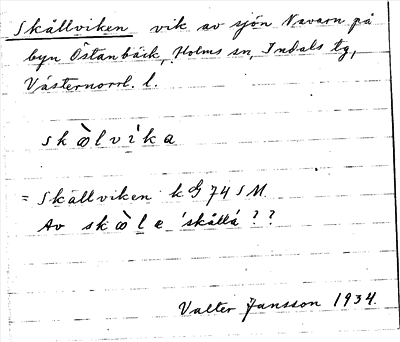 Skållviken vik av sjön Navarn på
byn Östanbäck, Holms sn, Indals tg,
Västernorrl. l.
skὼlvìka
= Skållviken kG 74 SM
Av skὼlα 'skålla'??
Valter Jansson 1934.